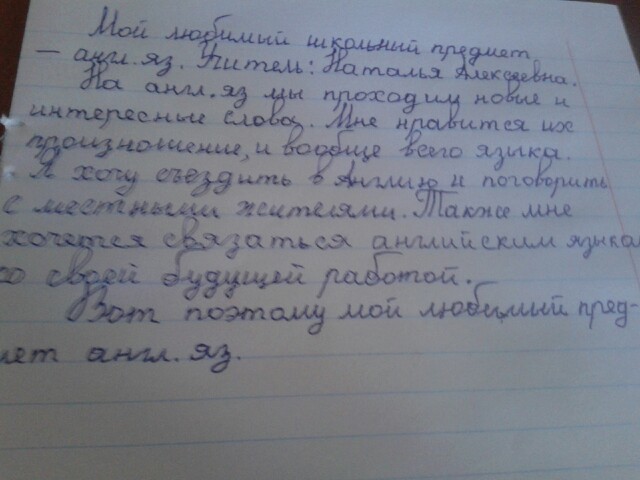 Мой любимый школьный предмет
- англ. яз. Учитель: Наталья Алексеевна.
На англ. яз мы проходим новые и
интересные слова. Мне нравится их
произношение, и вообще всего языка.
Я хочу съездить в Англию и поговорить
с местными жителями. Также мне
хочется связаться английским языком
со своей будущей работой.
Вот поэтому мой любимый пред-
мет англ. яз.